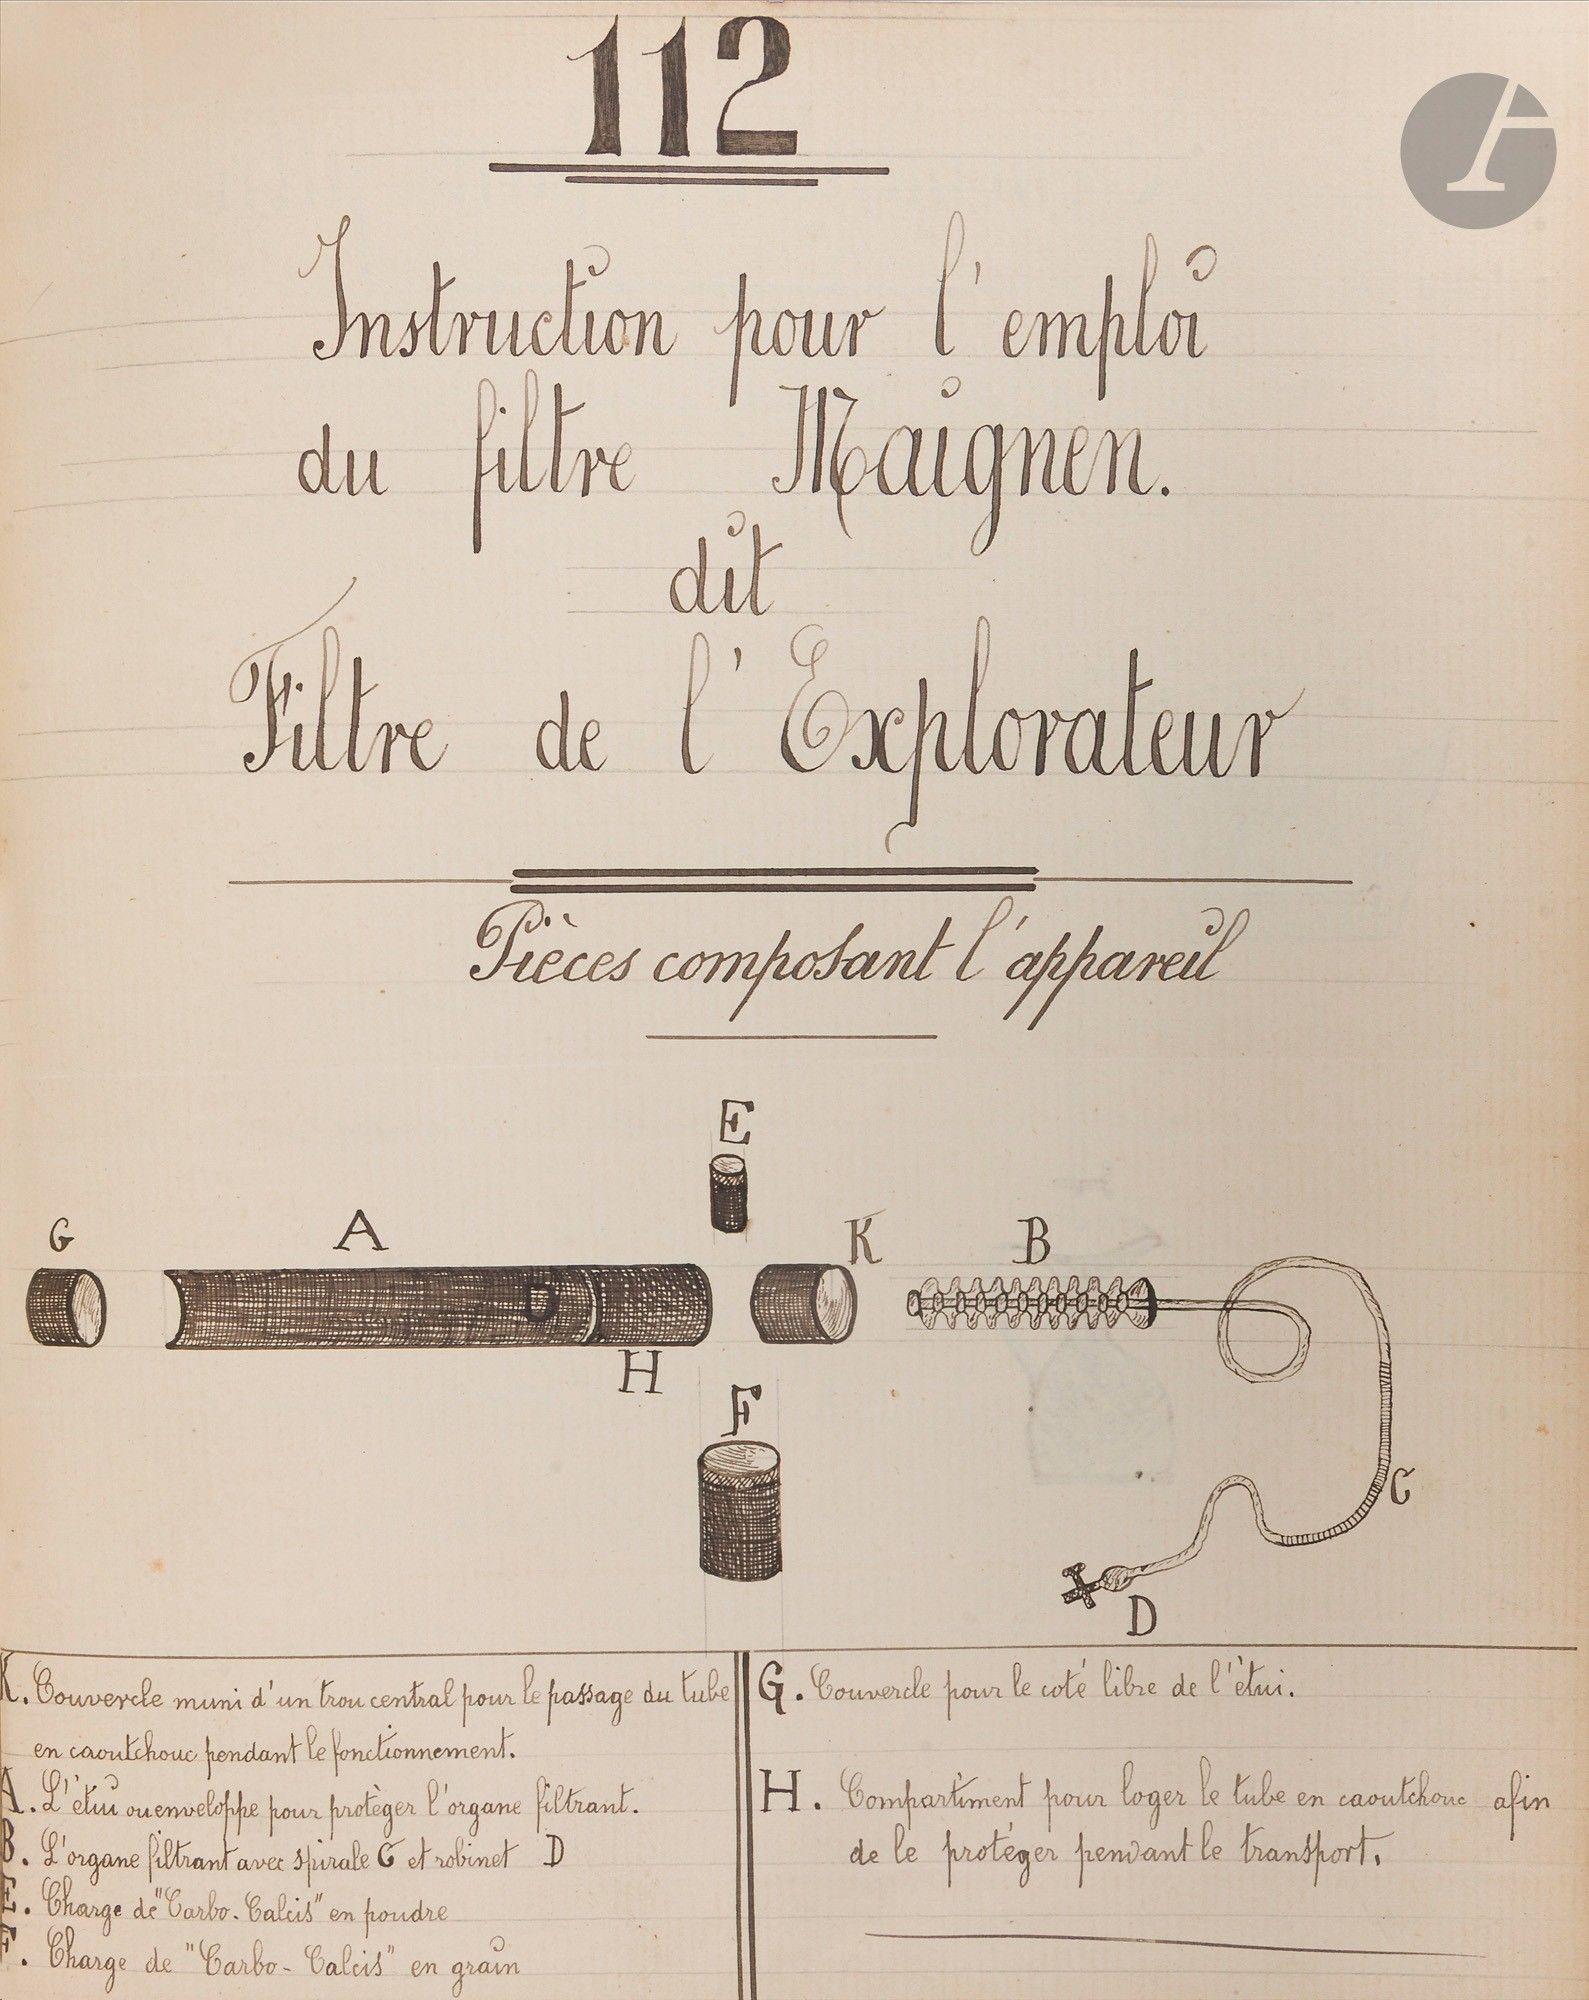 112
Instruction pour l'emploi
du filtre Maignen.
dit
Filtre de l'Explorateur
Pièces composant l'appareil
E
G
A
K
B
H
F
C
D
K. Couvercle muni d'un trou central pour le passage du tube
en caoutchouc pendant le fonctionnement.
A. L'étui ou enveloppe pour protèger l'organe filtrant.
B. L'organe filtrant avec spirale C et robinet D
E. Charge de "Carbo-Calcis" en poudre
F. Charge de "Carbo-Calcis" en grain
G. Couvercle pour le coté libre de l'étui.
H. Compartiment pour loger le tube en caoutchouc afin
de le protéger pendant le transport.